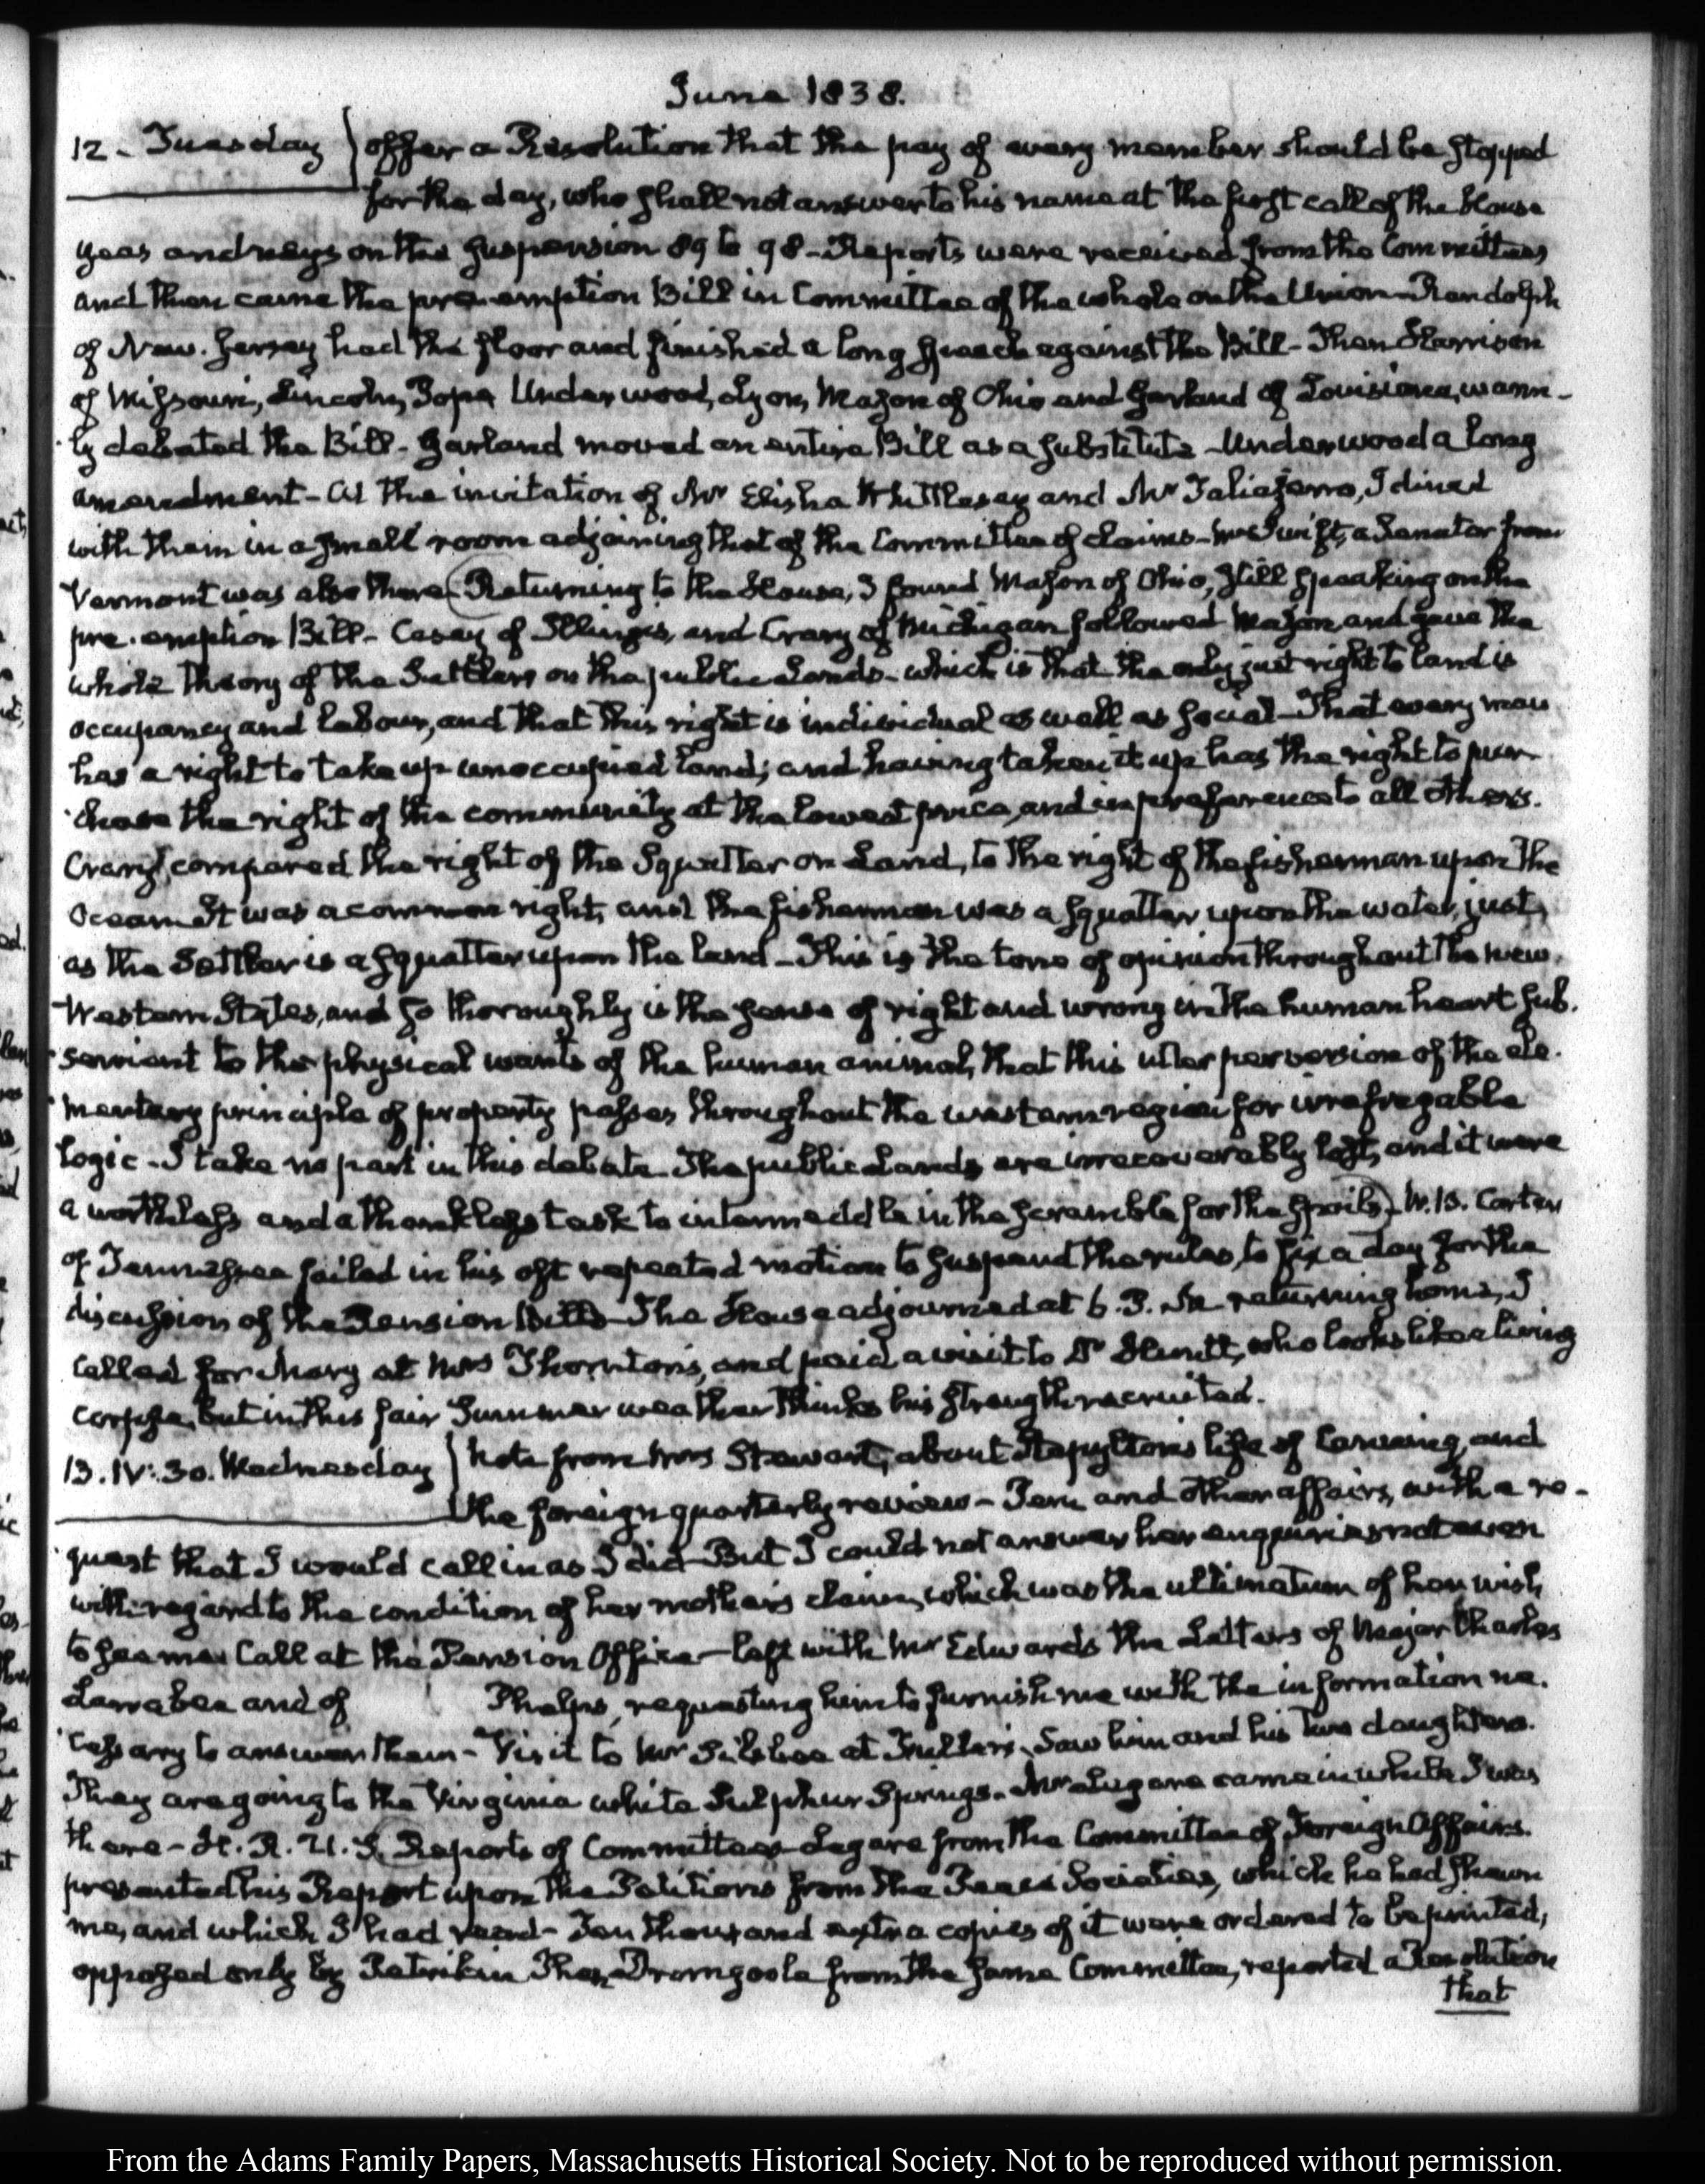 June 1838.
12. Tuesday } offer a Resolution that the pay of every member should be stopped
for the day, who shall not answer to his name at the first call of the House
yeas and nays on the suspension 89 to 98 - Reports were received from the Committees
and then came the pre-emption Bill in Committee of the whole on the Union - Randolph
of New-Jersey had the floor and finished a long speech against the Bill - Then Harrison
of Missouri, Lincoln, Pope Underwood, Lyon, Mason of Ohio and Garland of Louisiana, warm-
ly debated the Bill - Garland moved an entire Bill as a substitute - Underwood a long
amendment - At the invitation of Mr Elisha Whittlesey and Mr Taliaferro, I dined
with them in a small room adjoining that of the Committee of Claims - Mr Swift, a Senator from
Vermont was also there. Returning to the House, I found Mason of Ohio, still speaking on the
pre-emption Bill - Casey of Illinois, and Crary of Michigan followed Mason and gave the
whole theory of the Settlers on the public Lands - which is that the only just right to land is
occupancy and labour, and that this right is individual as well as social - That every man
has a right to take up unoccupied land; and having taken it up has the right to pur-
chase the right of the community at the lowest price, and in preference to all others.
Crary compared the right of the Squatter on Land, to the right of the fisherman upon the
Ocean It was a common right, and the fisherman was a squatter upon the water, just
as the Settler is a squatter upon the land - This is the tone of opinion throughout the new.
Western States, and so thoroughly is the sense of right and wrong in the human heart sub-
servient to the physical wants of the human animal, that this utter perversion of the ele-
mentary principle of property passes throughout the western region for irrefragable
logic - I take no part in this debate The public Lands are irrecoverably lost, and it were
a worthless and a thankless task to intermeddle in the scramble for the spoils. W. B. Carter
of Tennessee failed in his oft repeated motion to suspend the rules, to fix a day for the
discussion of the Pension Bills - The House adjourned at 6. P. M. returning home, I
called for Mary at Mrs Thornton's, and paid a visit to Dr Hunt, who looks like a living
corpse, but in this fair Summer weather thinks his strength recruited.
13. IV: 30. Wednesday } Note from Mrs Stewart, about Stapylton's life of Canning, and
the foreign quarterly review - and other affairs, with a re-
quest that I would call in as I did - But I could not answer her enquiries not even
with regard to the condition of her mother's claim, which was the ultimatum of her wish
to see me. Call at the Pension Office - left with Mr Edwards the Letters of Major Charles
Larrabee and of Phelps, requesting him to furnish me with the information ne-
cessary to answer them - Visit to Mr Silsbee at Fuller's, Saw him and his two daughters.
They are going to the Virginia white Sulphur Springs. Mr Legare came in while I was
there - H. R. U. S. Reports of Committees - Legare from the Committee of Foreign Affairs.
presented his Report upon the Petitions from the Peace Societies, which he had shewn
me, and which I had read - Ten thousand extra copies of it were ordered to be printed,
opposed only by Petrikin Then Dromgoole from the same Committee, reported a Resolution
that
From the Adams Family Papers, Massachusetts Historical Society. Not to be reproduced without permission.